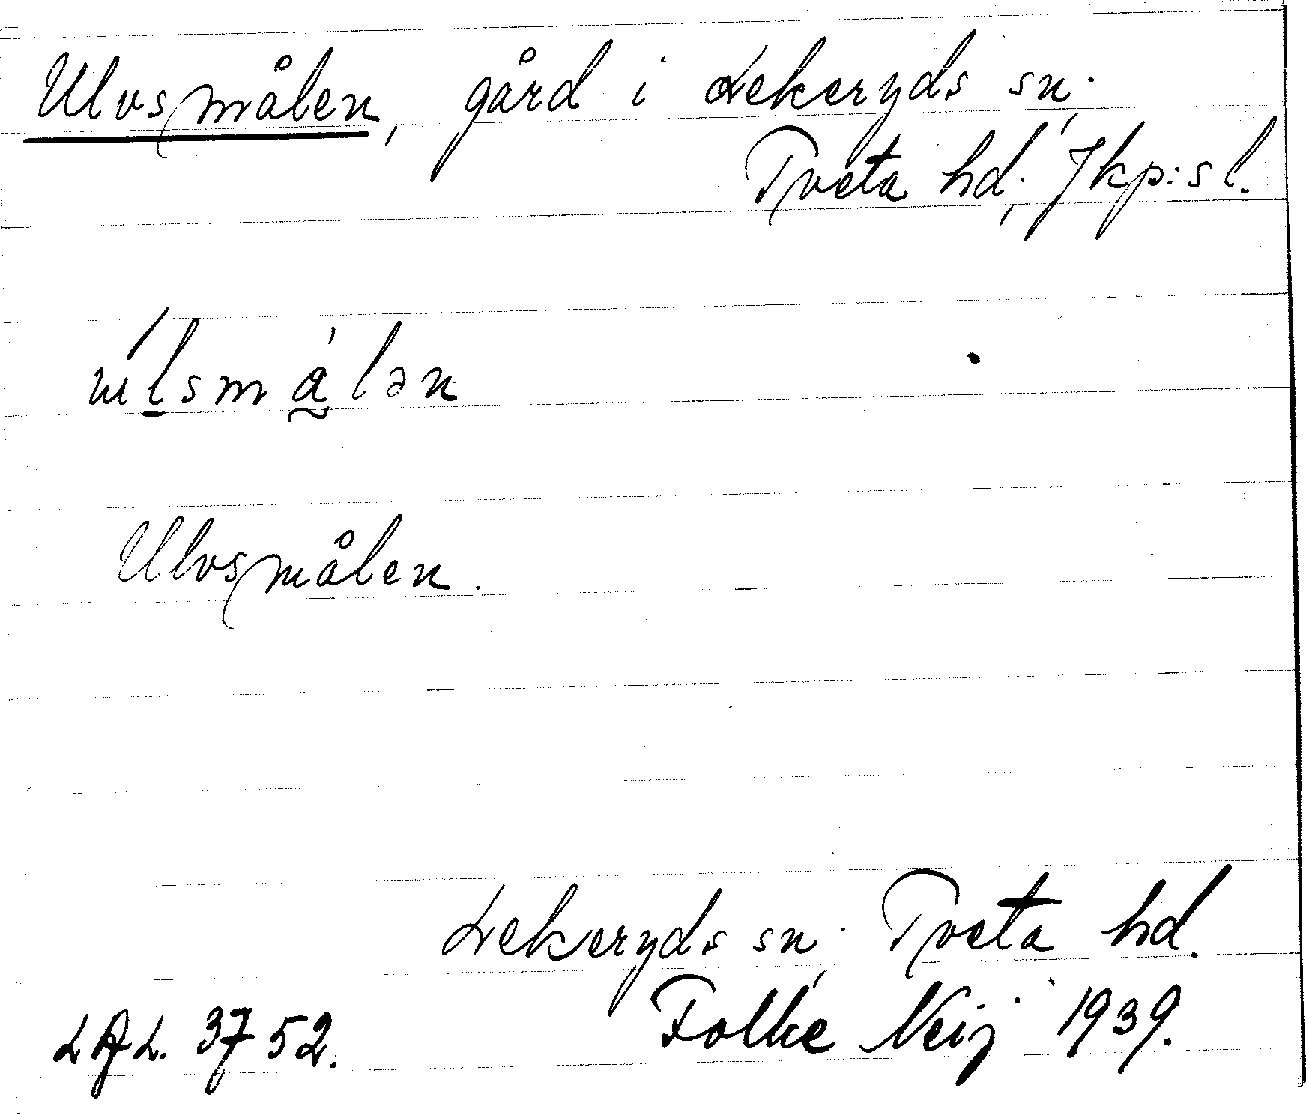 Ulvsmålen, gård i Lekeryds sn.,
Tveta hd., Jkp:s l.
Ulvsmålen.
Lekeryds sn., Tveta hd.
LAL. 3752. Folke Neij 1939.